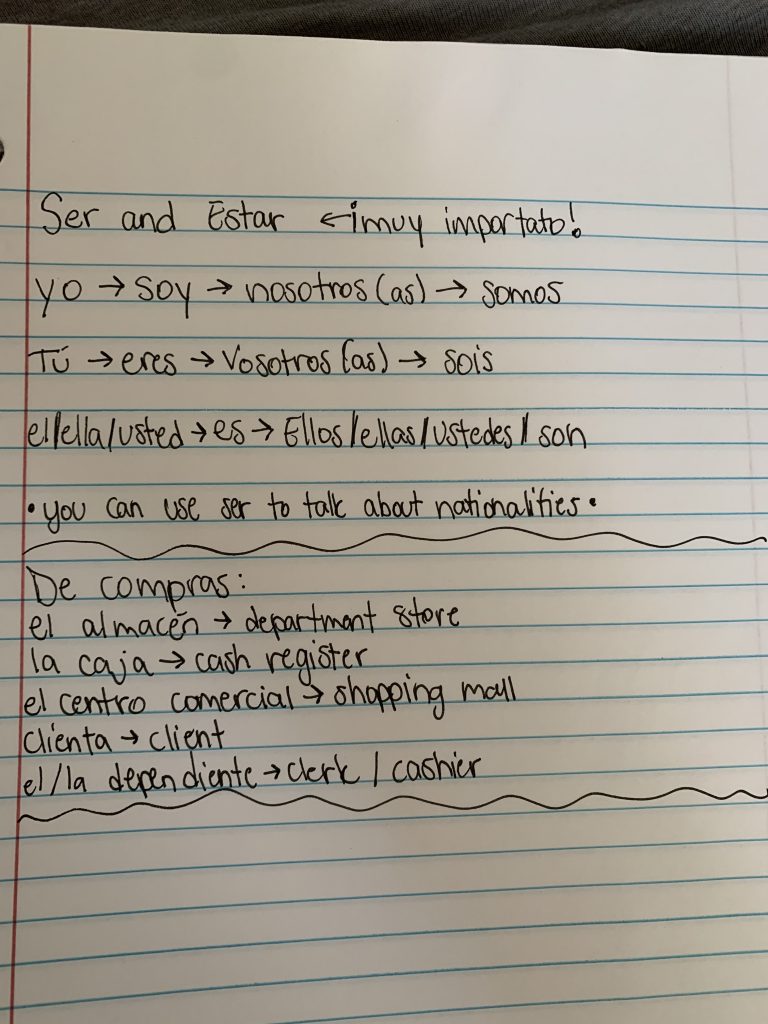 Ser and Estar ←¡muy importato!
yo → soy → nosotros(as) → somos
Tú → eres → Vosotros(as) → sois
el/ella/usted → es → Ellos/ellas/ustedes/ son
• you can use ser to talk about nationalities •
De compras:
el almacén → department store
la caja → cash register
el centro comercial → shopping mall
clienta → client
el/la dependiente → clerk / cashier